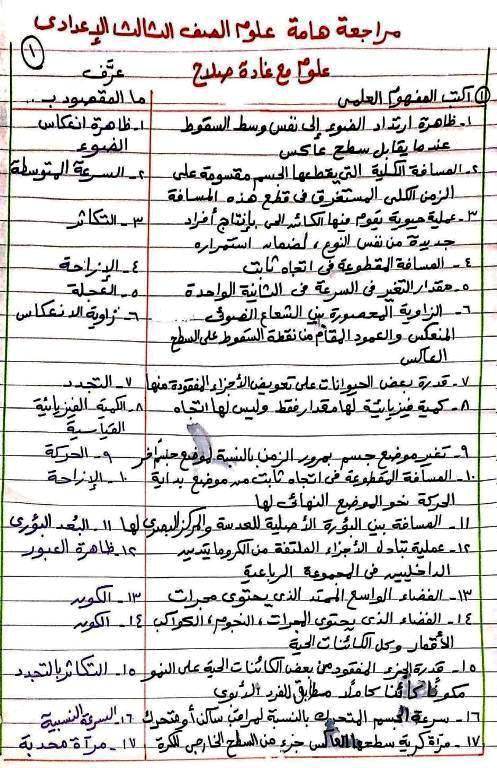 مراجعة هامة علوم الصف الثالث الإعدادى
١
علوم مع غادة صلاح
عرَّف
١) أكتب المفهوم العلمى
ما المقصود بـ..
١- ظاهرة ارتداد الضوء إلى نفس وسط السقوط
١- ظاهرة انعكاس
عندما يقابل سطح عاكس
الضوء
٢- المسافة الكلية التى يقطعها الجسم مقسومة على
٢- السرعة المتوسطة
الزمن الكلى المستغرق فى قطع هذه المسافة
٣- عملية حيوية يقوم فيها الكائن الحى بإنتاج أفراد
٣- التكاثر
جديدة من نفس النوع، لضمان استمراره
٤- المسافة المقطوعة فى اتجاه ثابت
٤- الإزاحة
٥- مقدار التغير فى السرعة فى الثانية الواحدة
٥- العجلة
٦- الزاوية المحصورة بين الشعاع الضوئى
٦- زاوية الانعكاس
المنعكس والعمود المقام من نقطة السقوط على السطح
العاكس
٧- قدرة بعض الحيوانات على تعويض الأجزاء المفقودة منها
٧- التجدد
٨- كمية فيزيائية لها مقدار فقط وليس لها اتجاه
٨- الكمية الفيزيائية
القياسية
٩- تغير موضع جسم بمرور الزمن بالنسبة لموضع جسم آخر
٩- الحركة
١٠- المسافة المقطوعة فى اتجاه ثابت من موضع بداية
١٠- الإزاحة
الحركة نحو الموضع النهائى لها
١١- المسافة بين البؤرة الأصلية للعدسة والمركز البصرى لها
١١- البُعد البؤرى
١٢- عملية تبادل الأجزاء الملتفة من الكروماتيدين
١٢- ظاهرة العبور
الداخليين فى المجموعة الرباعية
١٣- الفضاء الواسع الممتد الذى يحتوى مجرات
١٣- الكون
١٤- الفضاء الذى يحتوى المجرات، النجوم، الكواكب
١٤- الكون
الأقمار وكل الكائنات الحية
١٥- قدرة الجزء المفقود من بعض الكائنات الحية على النمو
١٥- التكاثر بالتجدد
مكونًا كائنًا كاملًا مطابق للفرد الأبوى
١٦- سرعة الجسم المتحرك بالنسبة لمراقب ساكن أو متحرك
١٦- السرعة النسبية
١٧- مرآة كرية سطحها العاكس جزء من السطح الخارجى للكرة
١٧- مرآة محدبة